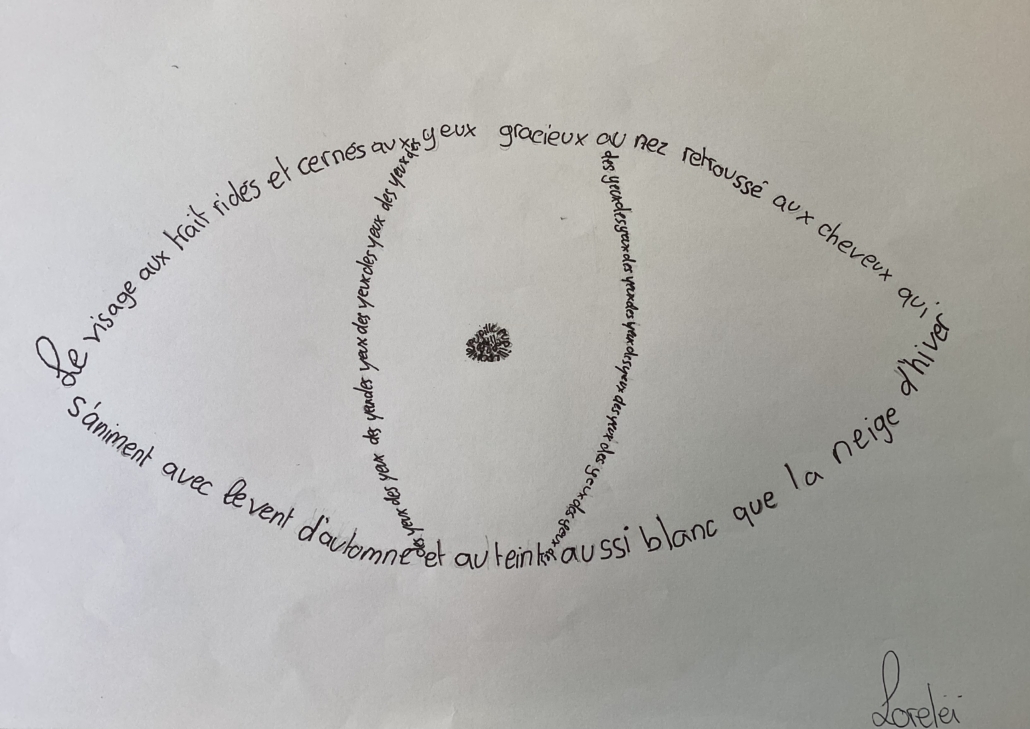 Le visage aux trait ridés et cernés aux yeux gracieux au nez retroussé aux cheveux qui
s'animent avec le vent d'automne et au teint aussi blanc que la neige d'hiver
des yeux des yeux des yeux des yeux des yeux des yeux des yeux des yeux des
des yeux des yeux des yeux des yeux des yeux des yeux des yeux des yeux des yeux des
Loreleï